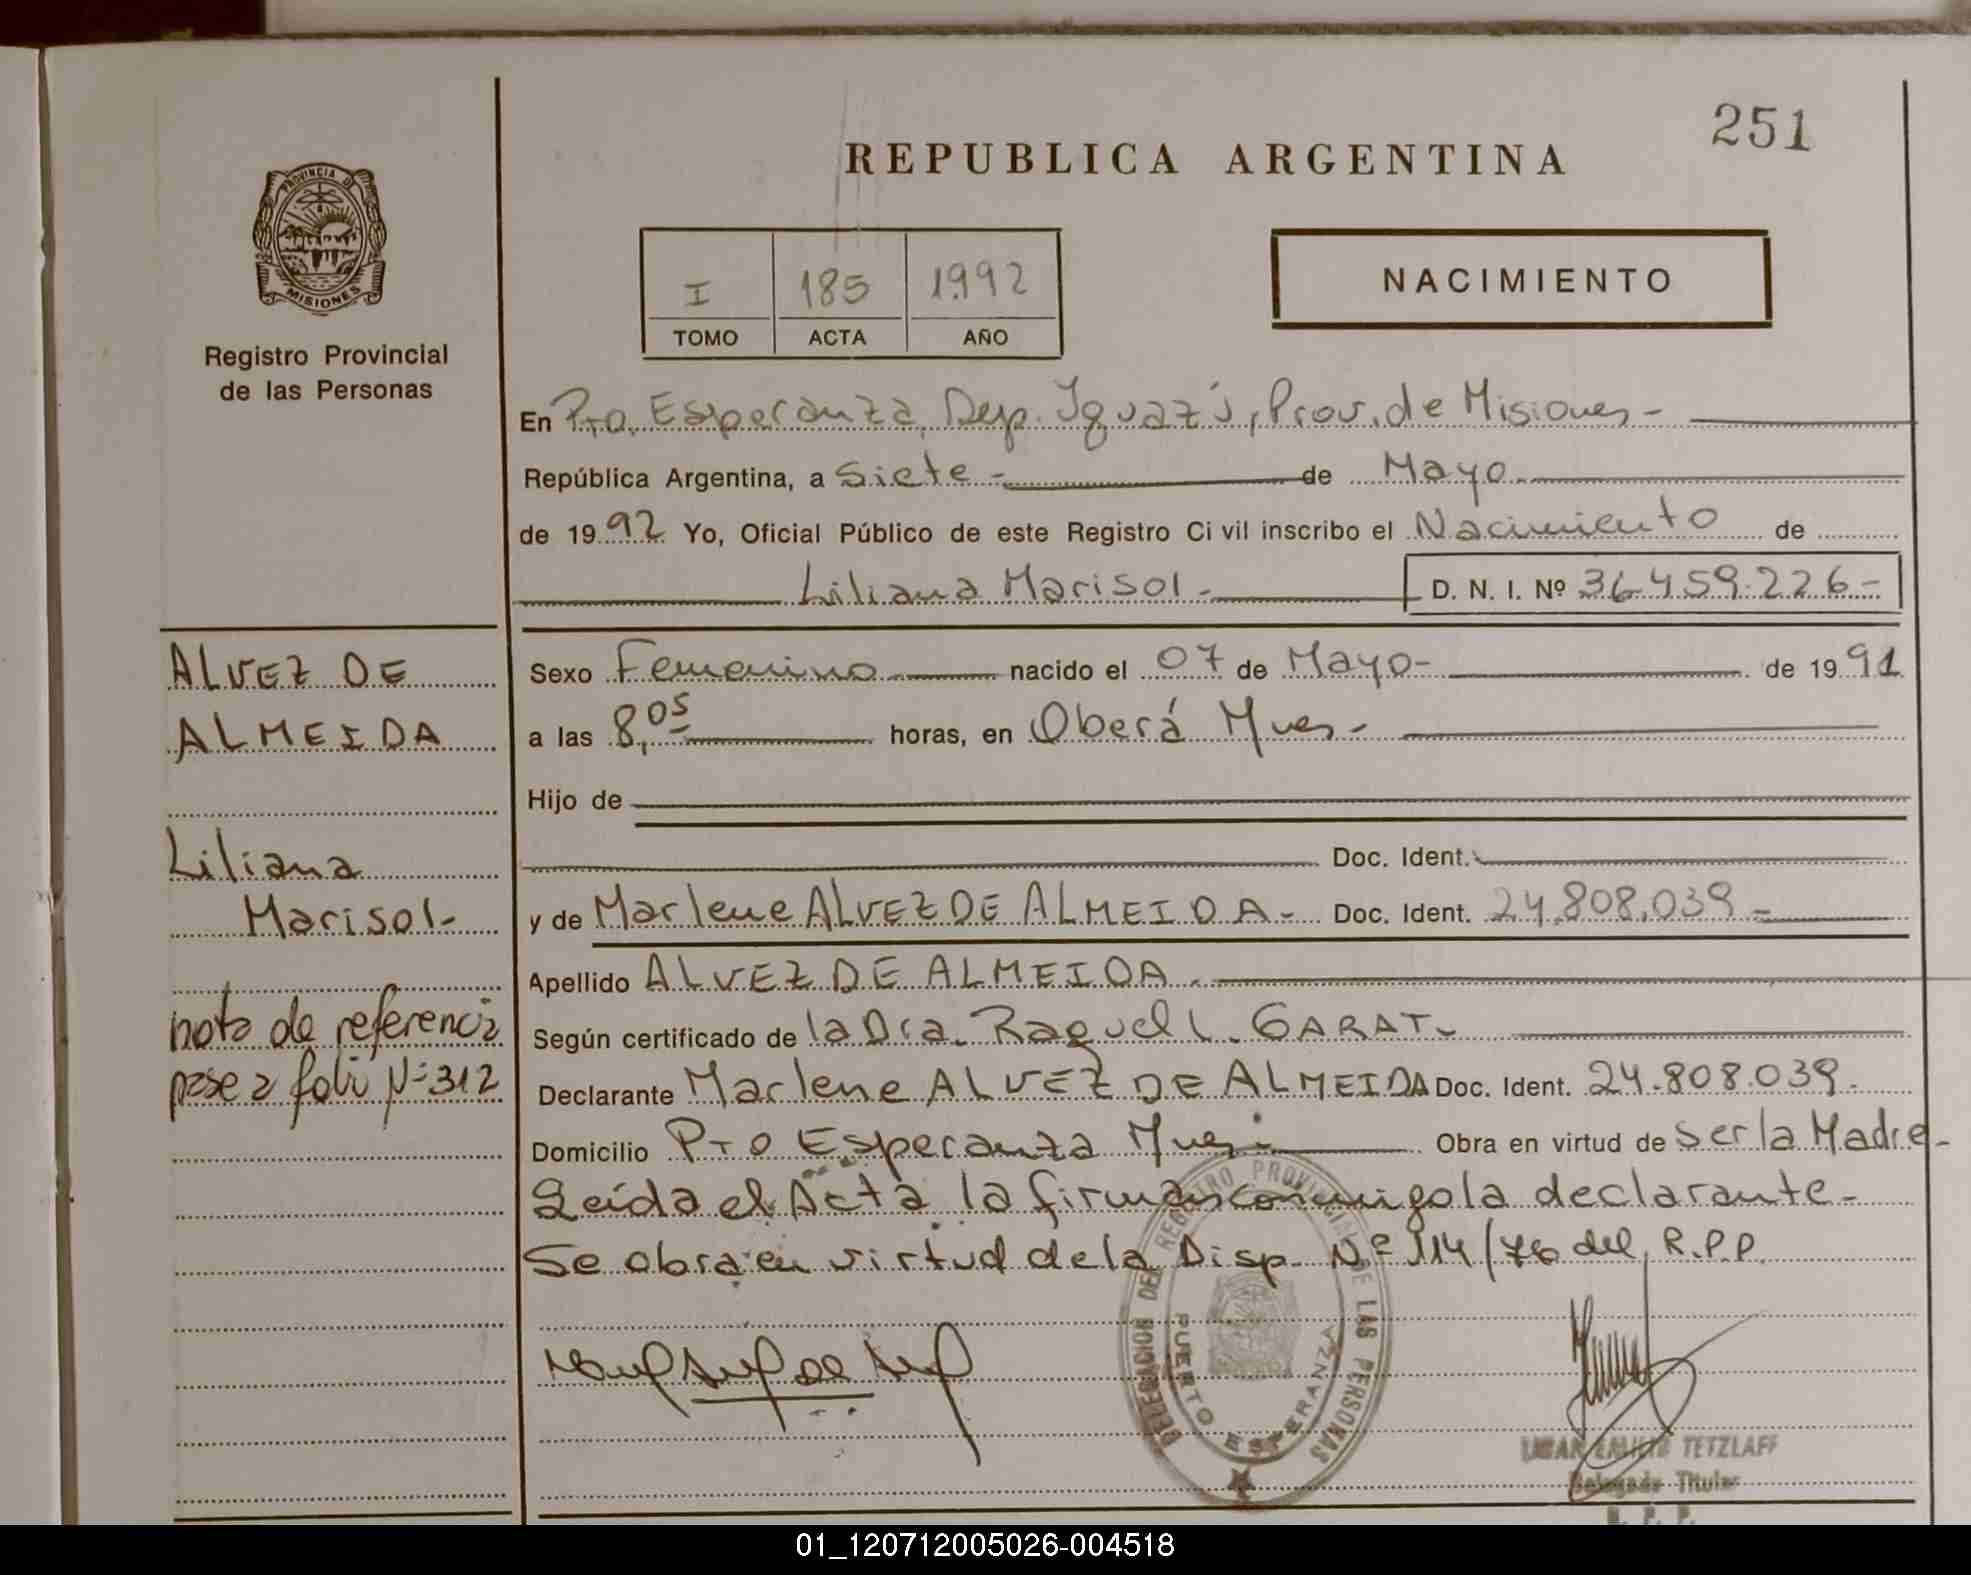 251
REPUBLICA ARGENTINA
PROVINCIA DE
MISIONES
Registro Provincial
de las Personas
I 185 1.992
TOMO ACTA AÑO
NACIMIENTO
En Pto. Esperanza, Dep. Iguazú, Prov. de Misiones -
República Argentina, a Siete - de Mayo
de 1992 Yo, Oficial Público de este Registro Ci vil inscribo el Nacimiento de
Liliana Marisol - D. N. I. Nº 36.459.226-
ALVEZ DE
ALMEIDA
Liliana
Marisol-
nota de referencia
pase a folio Nº 312
Sexo Femenino nacido el 07 de Mayo- de 1991
a las 8,05 horas, en Oberá Mnes-
Hijo de
Doc. Ident.
y de Marlene ALVEZ DE ALMEIDA - Doc. Ident. 24.808.039-
Apellido ALVEZ DE ALMEIDA.
Según certificado de la Dra. Raquel L. GARAT-
Declarante Marlene ALVEZ DE ALMEIDA Doc. Ident. 24.808.039-
Domicilio Pto Esperanza Mnes- Obra en virtud de ser la Madre-
Leída el Acta, la firma conmigo la declarante-
Se obra en virtud de la Disp. Nº 114/76 del R.P.P.
DELEGACION DEL REGISTRO PROVINCIAL DE LAS PERSONAS
PUERTO ESPERANZA
TETZLAFF
Delegado Titular
R. P. P.
01_120712005026-004518